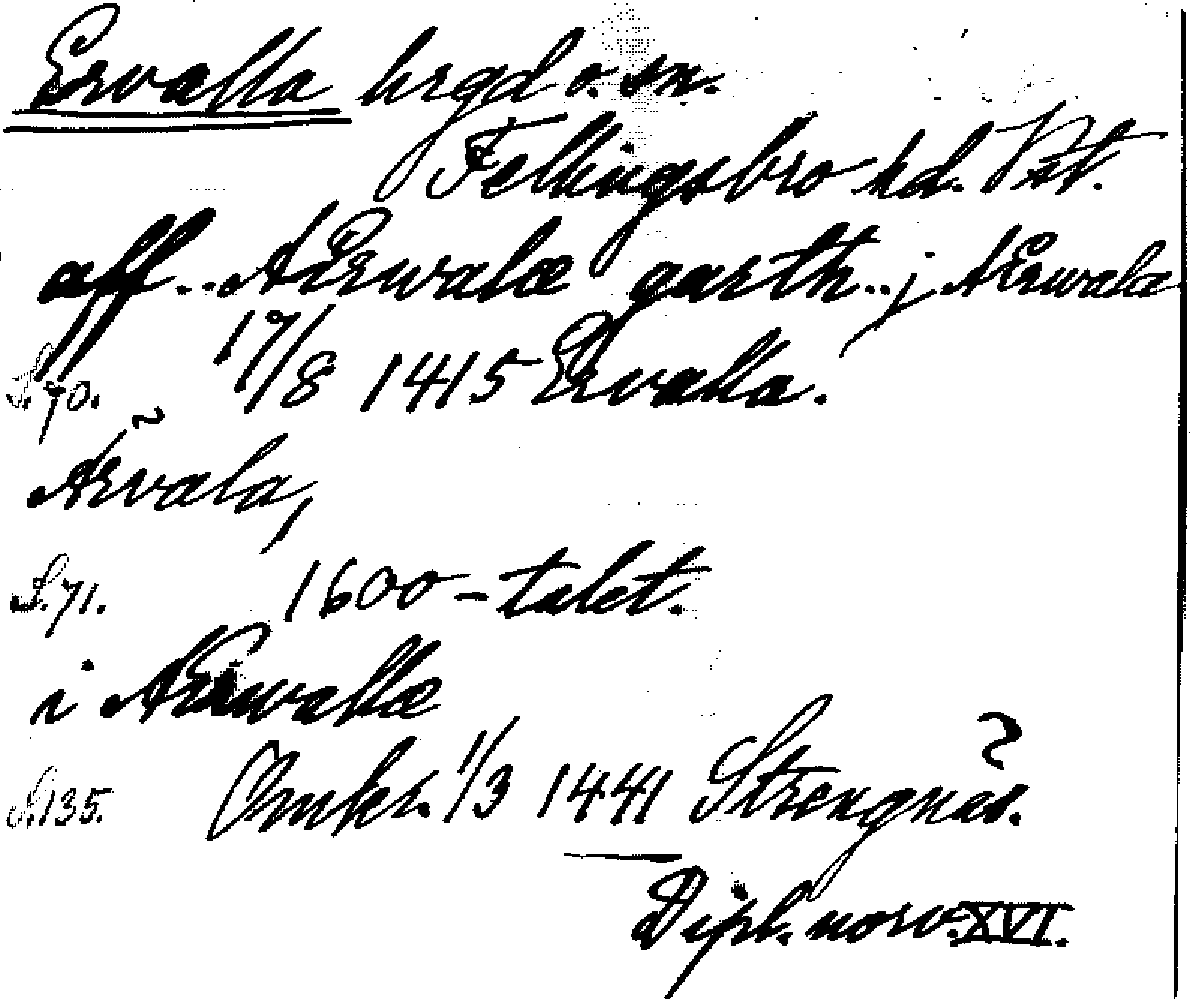 Ervalla hrgd o. sn.
Fellingsbro hd. Vst.
aff .. Ærwalæ garth .. j Ærwala
S. 70. 17/8 1415 Ervalla.
Ærvala,
S. 71. 1600-talet.
i Ærwallæ
S. 135. Omkr. 1/3 1441 Strengnäs.
Dipl. norv. XVI.